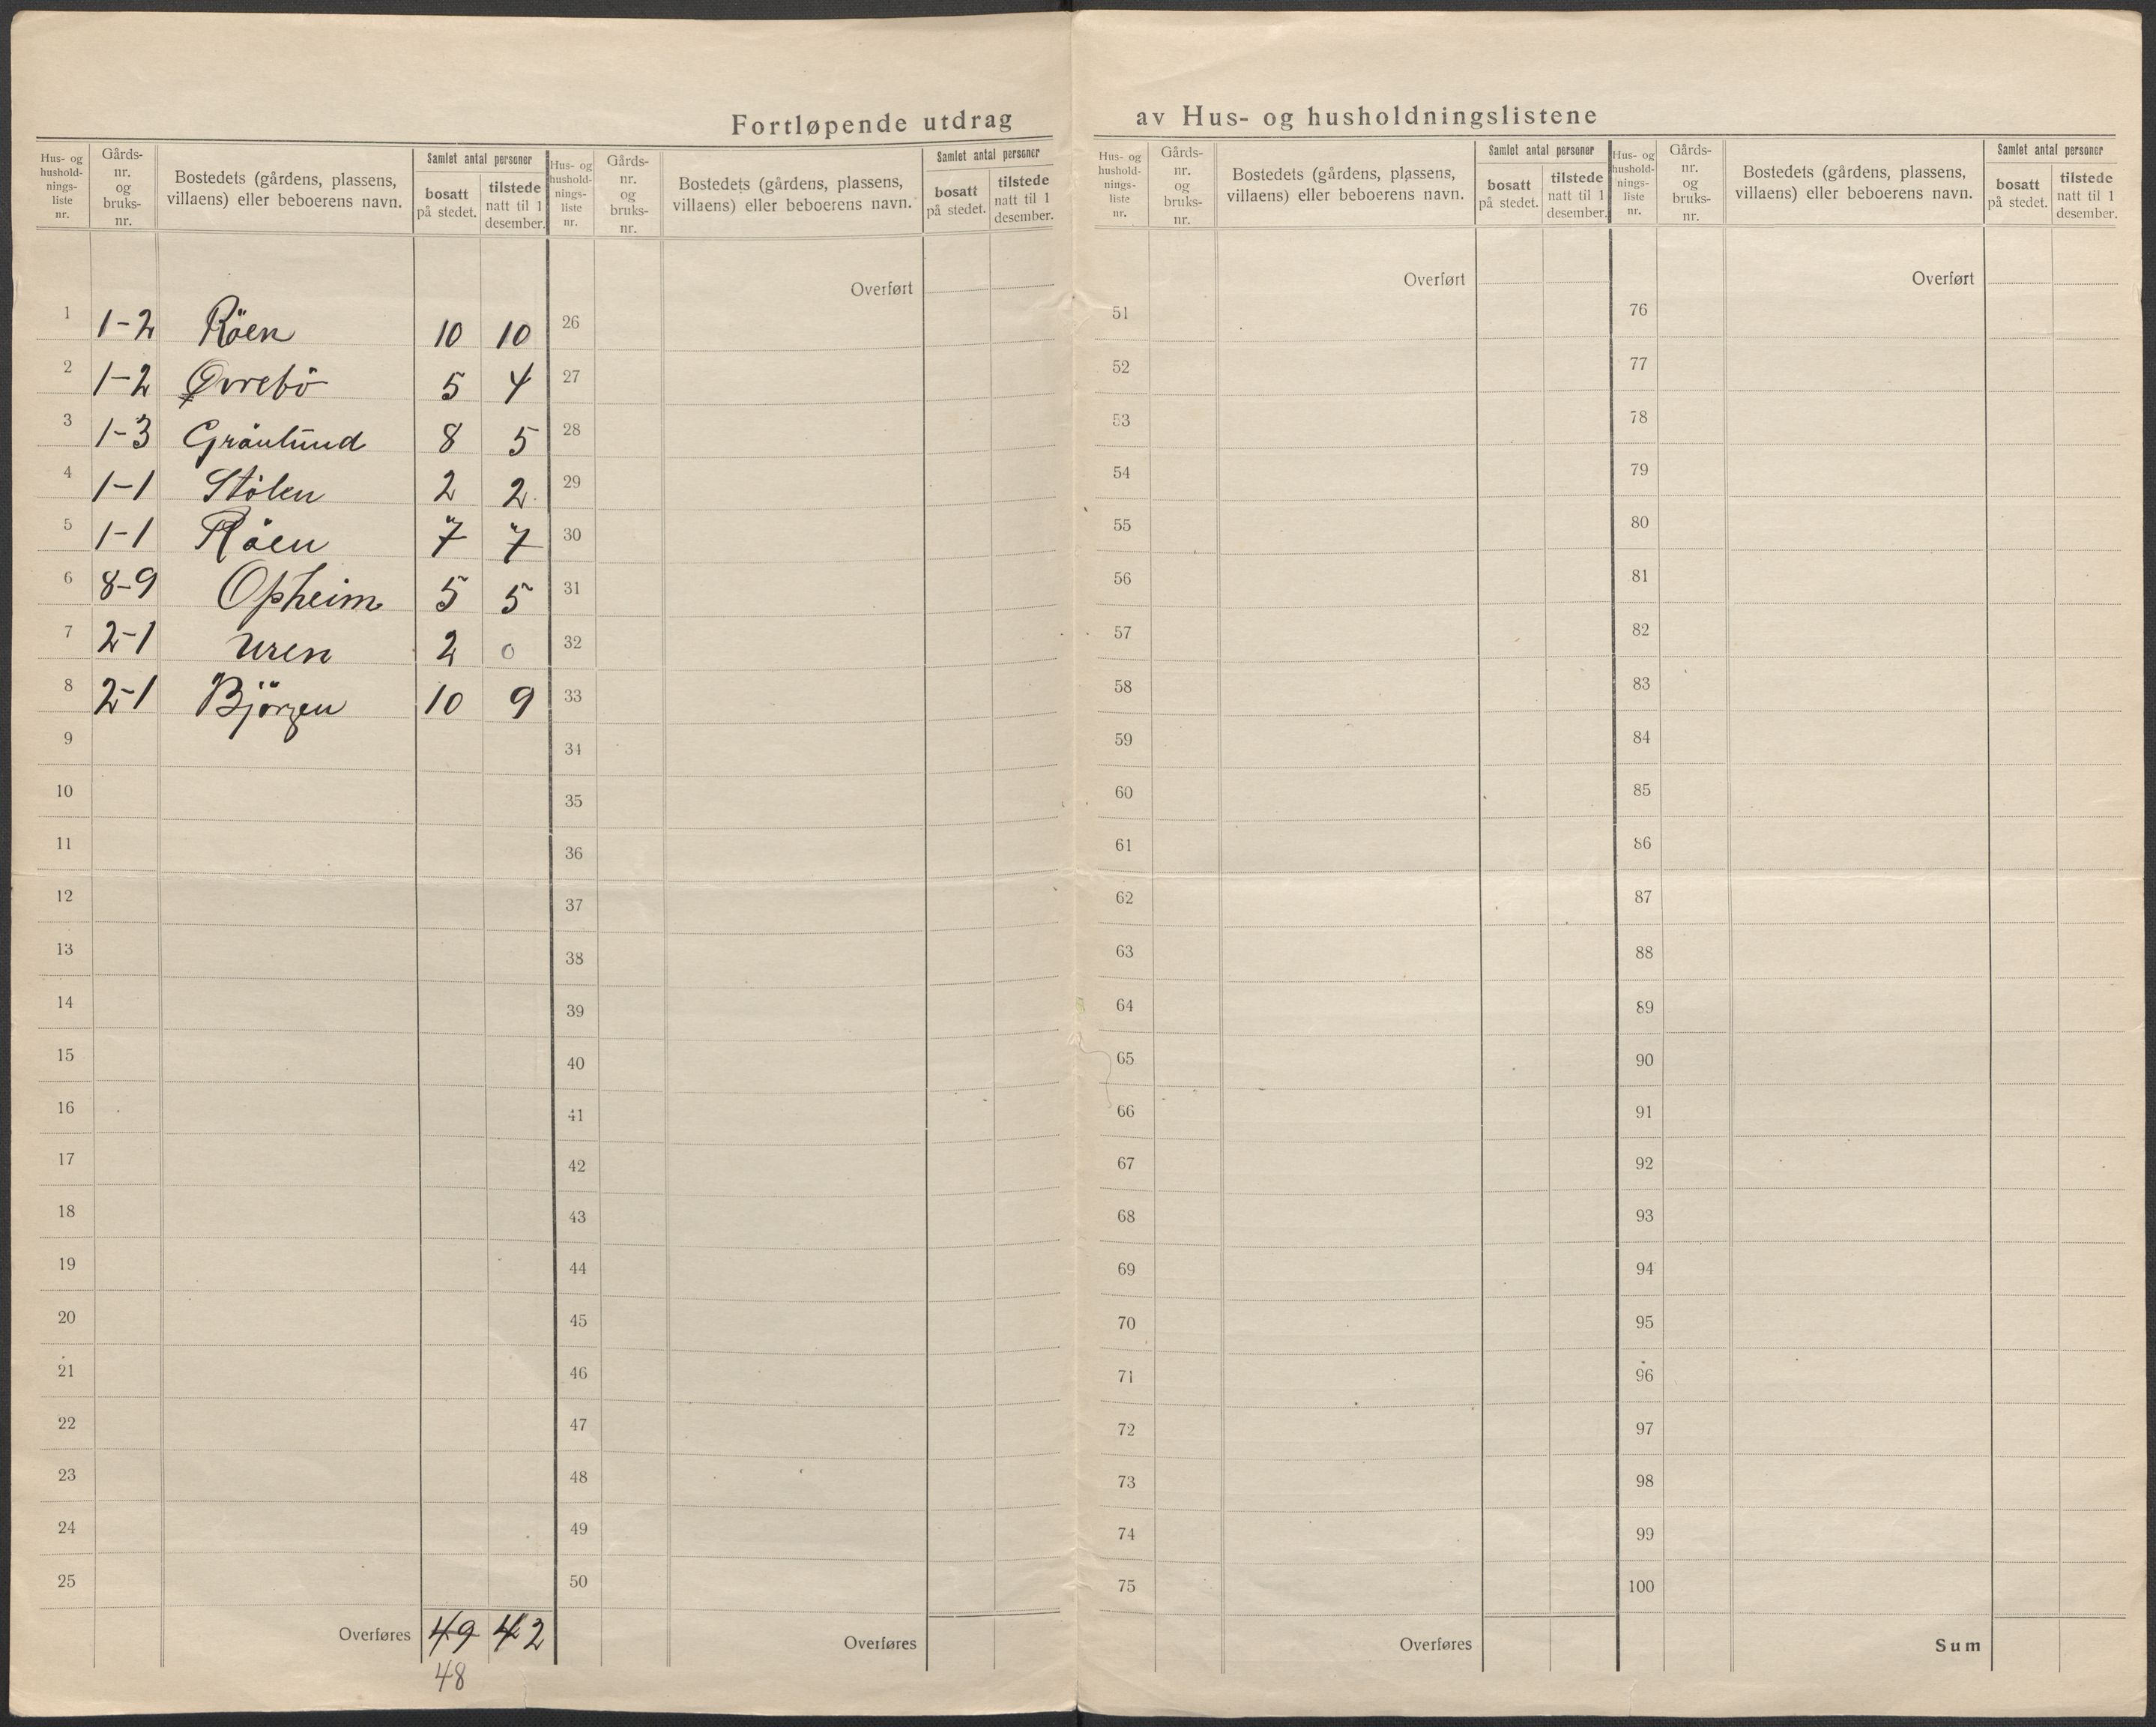 Fortløpende utdrag av Hus- og husholdningslistene
Hus- og hushold- nings- liste nr. | Gårds- nr. og bruks- nr. | Bostedets (gårdens, plassens, villaens) eller beboerens navn. | Samlet antal personer | bosatt på stedet. | tilstede natt til 1 desember.
1 | 1-2 | Röen | 10 | 10
2 | 1-2 | Øvrebö | 5 | 4
3 | 1-3 | Grånlund | 8 | 5
4 | 1-1 | Stölen | 2 | 2
5 | 1-1 | Röen | 7 | 7
6 | 8-9 | Opheim | 5 | 5
7 | 2-1 | Uren | 2 | 0
8 | 2-1 | Björgen | 10 | 9
9
10
11
12
13
14
15
16
17
18
19
20
21
22
23
24
25
Overføres | 49 | 42
48
Hus- og hushold- nings- liste nr. | Gårds- nr. og bruks- nr. | Bostedets (gårdens, plassens, villaens) eller beboerens navn. | Samlet antal personer | bosatt på stedet. | tilstede natt til 1 desember.
Overført
26
27
28
29
30
31
32
33
34
35
36
37
38
39
40
41
42
43
44
45
46
47
48
49
50
Overføres
Hus- og hushold- nings- liste nr. | Gårds- nr. og bruks- nr. | Bostedets (gårdens, plassens, villaens) eller beboerens navn. | Samlet antal personer | bosatt på stedet. | tilstede natt til 1 desember.
Overført
51
52
53
54
55
56
57
58
59
60
61
62
63
64
65
66
67
68
69
70
71
72
73
74
75
Overføres
Hus- og hushold- nings- liste nr. | Gårds- nr. og bruks- nr. | Bostedets (gårdens, plassens, villaens) eller beboerens navn. | Samlet antal personer | bosatt på stedet. | tilstede natt til 1 desember.
Overført
76
77
78
79
80
81
82
83
84
85
86
87
88
89
90
91
92
93
94
95
96
97
98
99
100
Sum